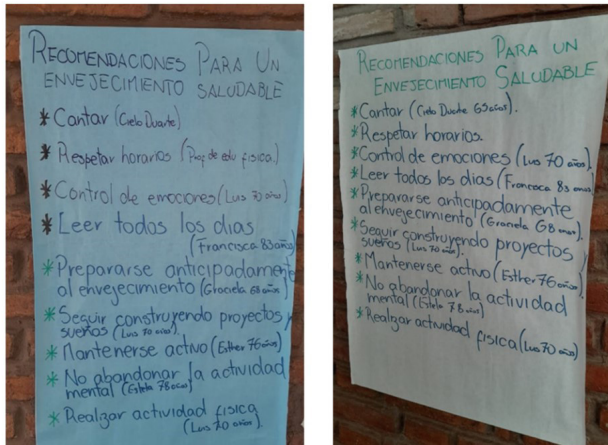 RECOMENDACIONES PARA UN
ENVEJECIMIENTO SALUDABLE
* Cantar (Cielo Duarte)
* Respetar horarios (Prof de edu fisica.)
* Control de emociones (Luis 70 años)
* Leer todos los dias
(Francisca 83 años)
* Prepararse anticipadamente
al envejecimiento (Graciela 68 años)
* Seguir construyendo proyectos y
sueños (Luis 70 años).
* Mantenerse activo (Esther 76 años)
* No abandonar la actividad
mental (Estela 78 años)
* Realizar actividad fisica
(Luis 70 años).
RECOMENDACIONES PARA UN
ENVEJECIMIENTO SALUDABLE
* Cantar (Cielo Duarte 65 años).
* Respetar horarios.
* Control de emociones (Luis 70 años).
* Leer todos los dias (Francisca 83 años)
* Prepararse anticipadamente
al envejecimiento (Graciela 68 años).
* Seguir construyendo proyectos y
sueños (Luis 70 años).
* Mantenerse activo (Esther 76 años)
* No abandonar la actividad
mental (Estela 78 años)
* Realizar actividad fisica (Luis 70 años)